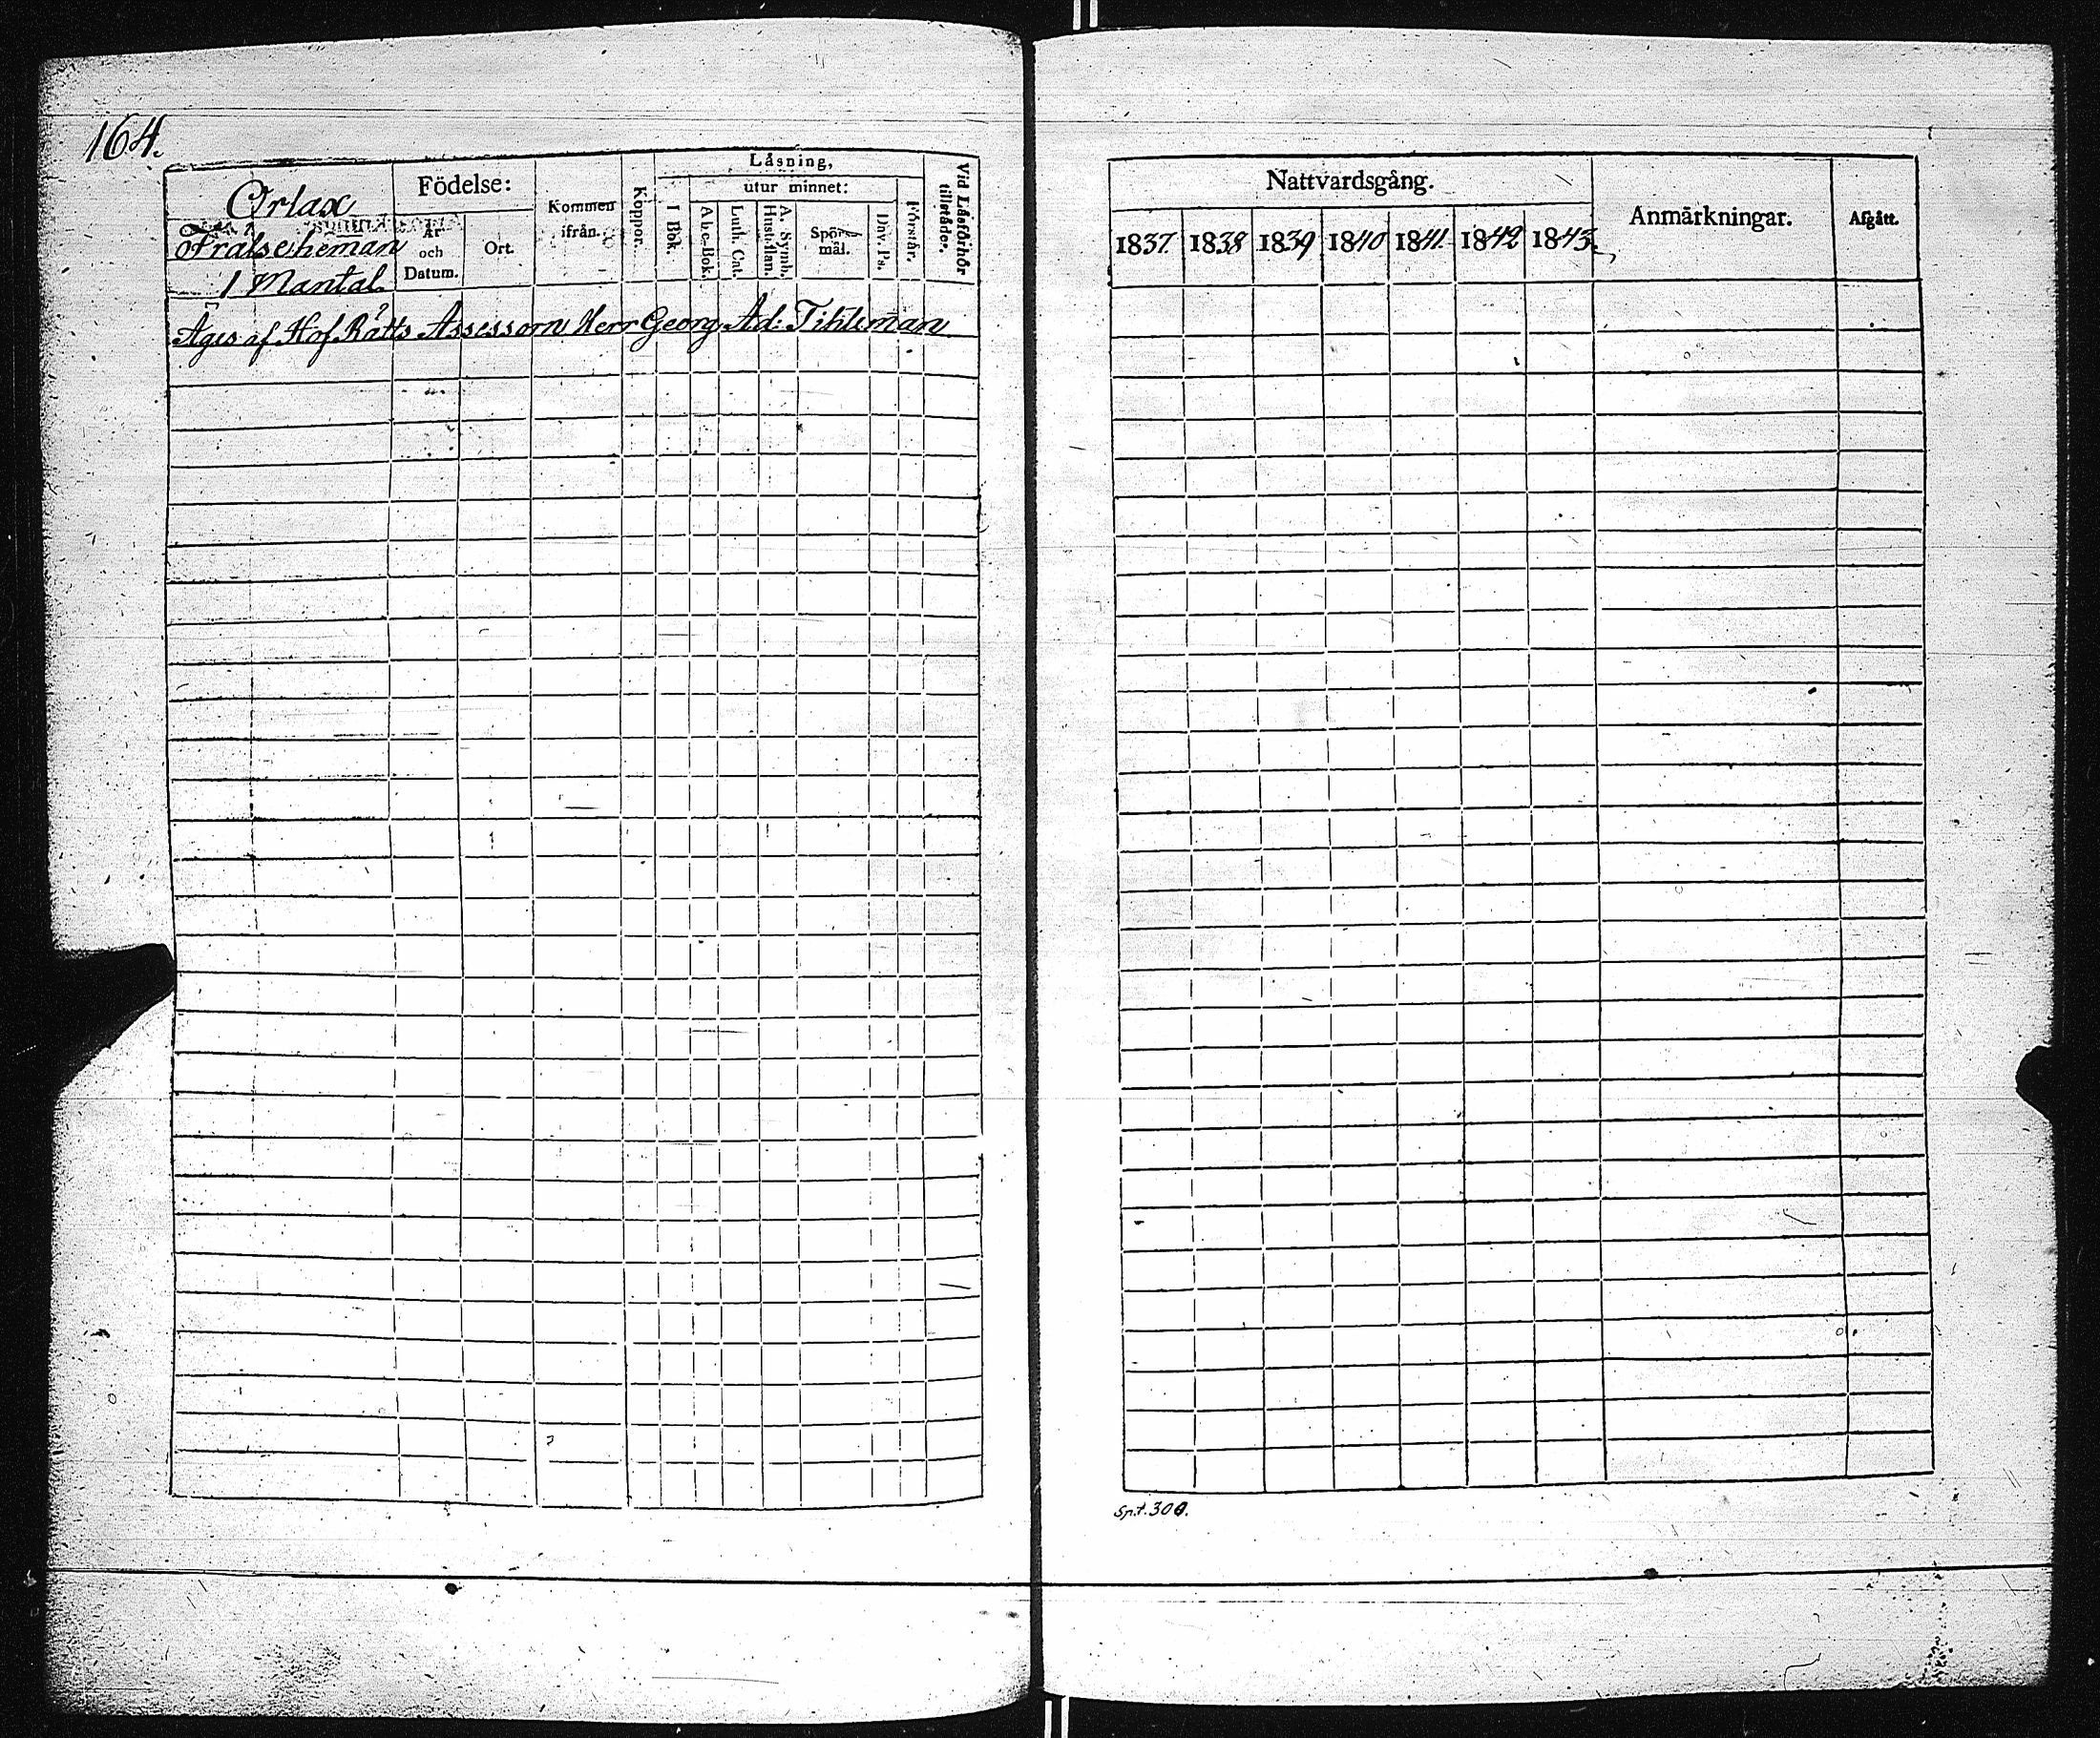 164.
Orlax
Frälseheman
1 Mantal
Födelse:
År och Datum.
Ort.
Kommen ifrån.
Koppor.
Läsning,
I Bok.
utur minnet:
Abc-Bok.
Luth. Cat.
A. Symb. Hust.aflan.
Spörsmål.
Dav. Ps.
Förstår.
Vid Läsförhör tillstädes.
Äges af Hof Rätts Assessorn Herr Georg Ad: Tihleman
Nattvardsgång.
1837. 1838 1839 1840 1841. 1842 1843.
Anmärkningar.
Afgått.
Sp.t. 300.